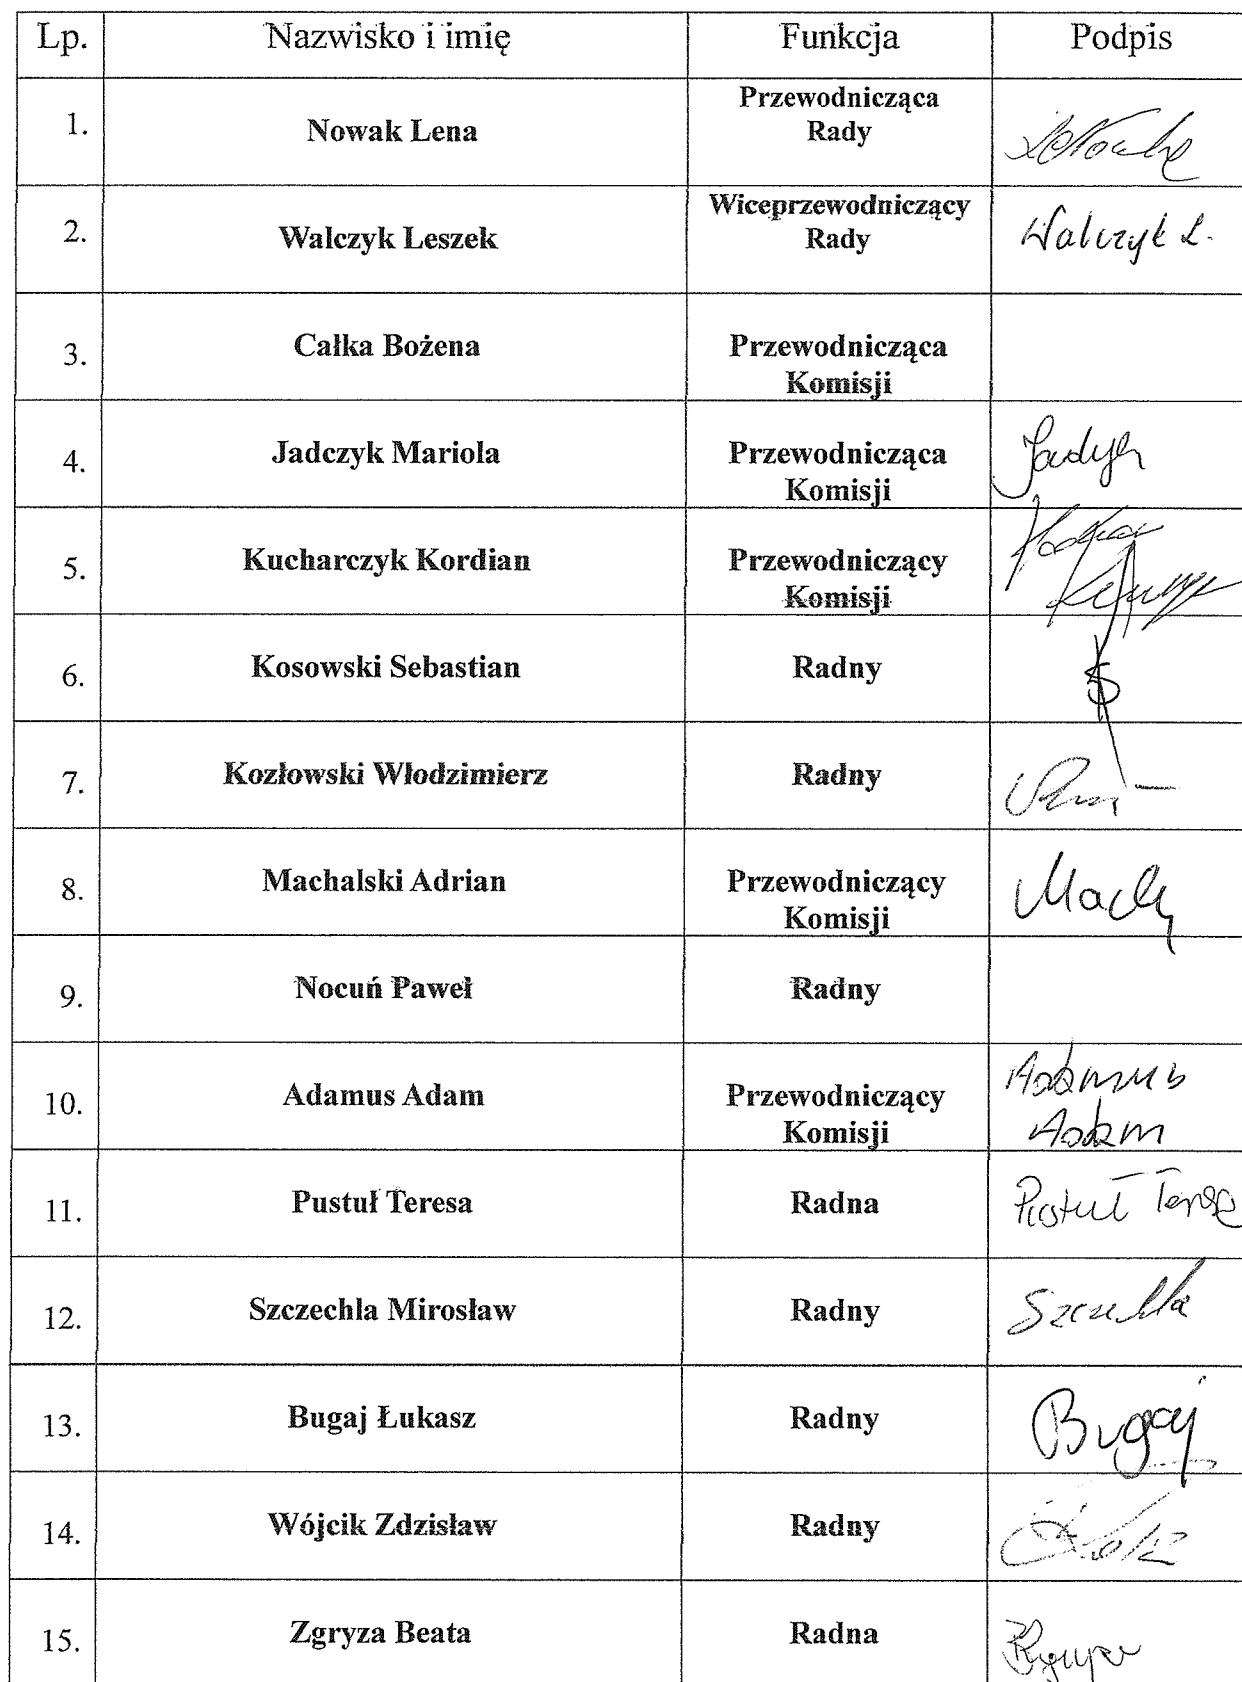 Lp. Nazwisko i imię Funkcja Podpis
1. Nowak Lena Przewodnicząca
Rady
2. Walczyk Leszek Wiceprzewodniczący Walczyk L.
Rady
3. Całka Bożena Przewodnicząca
Komisji
4. Jadczyk Mariola Przewodnicząca
Komisji
5. Kucharczyk Kordian Przewodniczący
Komisji
6. Kosowski Sebastian Radny
7. Kozłowski Włodzimierz Radny
8. Machalski Adrian Przewodniczący
Komisji
9. Nocuń Paweł Radny
10. Adamus Adam Przewodniczący Adamus
Komisji Adam
11. Pustuł Teresa Radna Pustuł Teresa
12. Szczechla Mirosław Radny
13. Bugaj Łukasz Radny Bugaj
14. Wójcik Zdzisław Radny
15. Zgryza Beata Radna